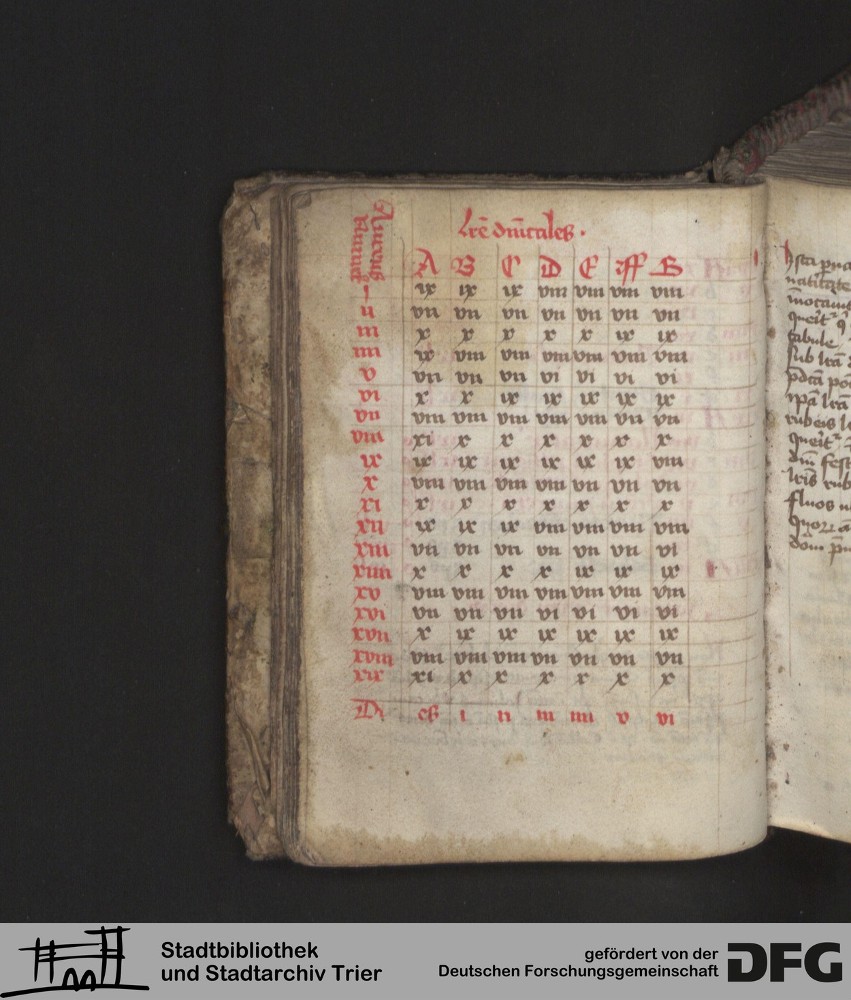 Aureus numerus
lr̄e dn̄icales ·
A B C D E ff G
i ix ix ix viii viii viii viii
ii vii vii vii vii vii vii vii
iii x x x x x ix ix
iiii ix viii viii viii viii viii viii
v vii vii vii vi vi vi vi
vi x x ix ix ix ix ix
vii viii viii viii viii viii vii vii
viii xi x x x x x x
ix ix ix ix ix ix ix viii
x viii viii viii viii vii vii vii
xi x x x x x x x
xii ix ix ix viii viii viii viii
xiii vii vii vii vii vii vii vi
xiiii x x x x ix ix ix
xv viii viii viii viii viii viii viii
xvi vii vii vii vi vi vi vi
xvii x ix ix ix ix ix ix
xviii viii viii viii vii vii vii vii
xix xi x x x x x x
Di es i ii iii iiii v vi
tabule
sub
rubeis
dn̄i fest
fluos
Stadtbibliothek
und Stadtarchiv Trier
gefördert von der
Deutschen Forschungsgemeinschaft
DFG